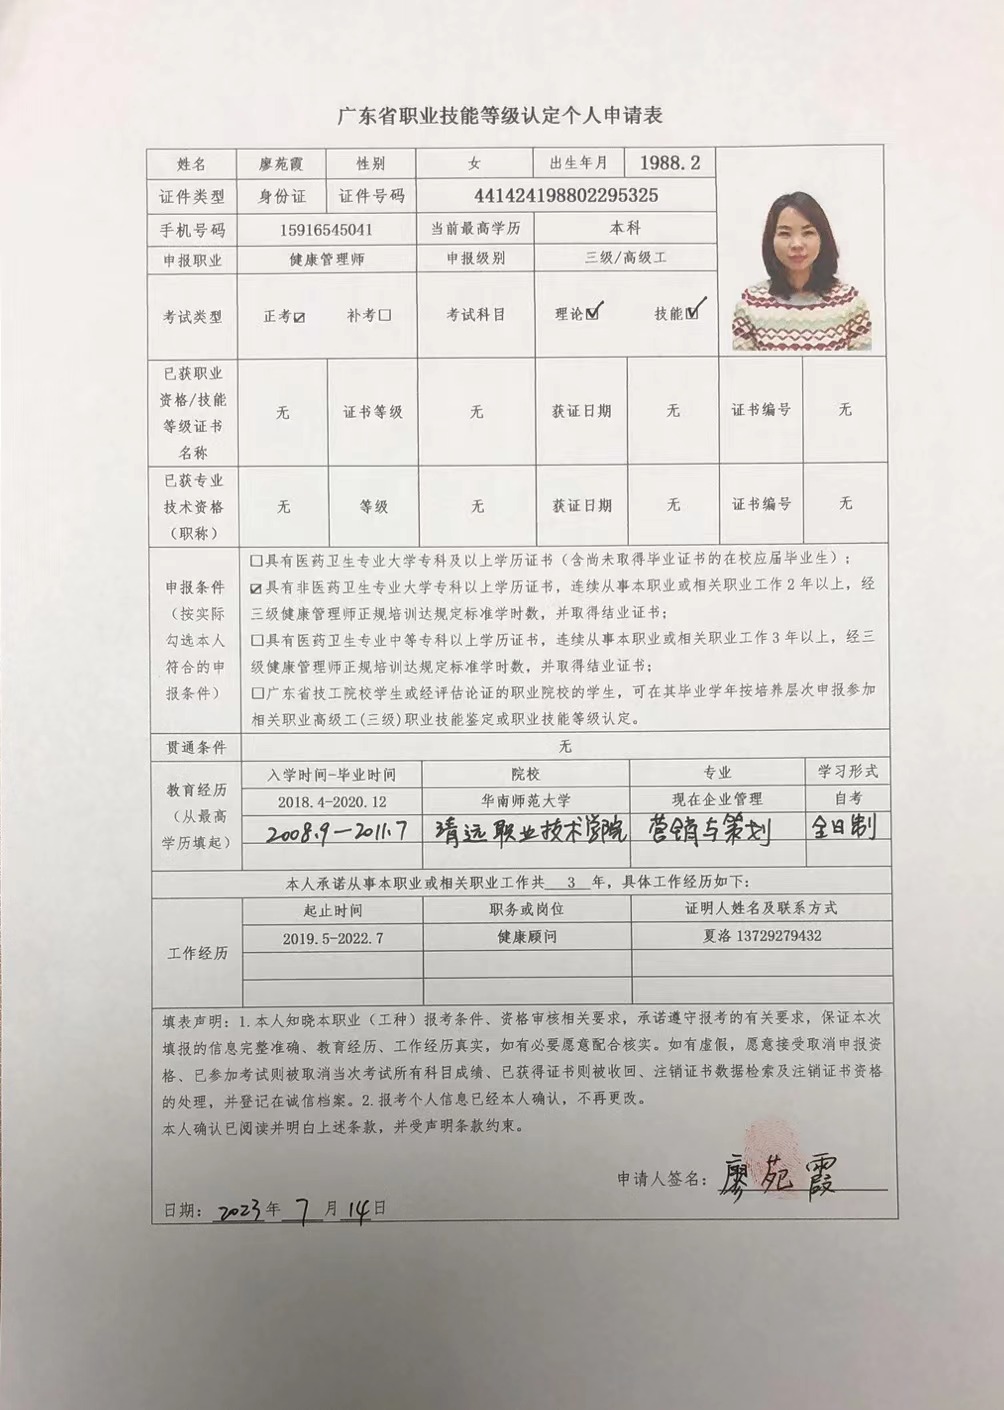 广东省职业技能等级认定个人申请表
姓名 廖苑霞 性别 女 出生年月 1988.2
证件类型 身份证 证件号码 441424198802295325
手机号码 15916545041 当前最高学历 本科
申报职业 健康管理师 申报级别 三级/高级工
考试类型 正考☑ 补考☐ 考试科目 理论☑ 技能☑
已获职业
资格/技能
等级证书
名称
无 证书等级 无 获证日期 无 证书编号 无
已获专业
技术资格
（职称）
无 等级 无 获证日期 无 证书编号 无
申报条件
（按实际
勾选本人
符合的申
报条件）
☐具有医药卫生专业大学专科及以上学历证书（含尚未取得毕业证书的在校应届毕业生）；
☑具有非医药卫生专业大学专科以上学历证书，连续从事本职业或相关职业工作2年以上，经
三级健康管理师正规培训达规定标准学时数，并取得结业证书；
☐具有医药卫生专业中等专科以上学历证书，连续从事本职业或相关职业工作3年以上，经三
级健康管理师正规培训达规定标准学时数，并取得结业证书；
☐广东省技工院校学生或经评估论证的职业院校的学生，可在其毕业学年按培养层次申报参加
相关职业高级工(三级)职业技能鉴定或职业技能等级认定。
贯通条件 无
教育经历
（从最高
学历填起）
入学时间-毕业时间 院校 专业 学习形式
2018.4-2020.12 华南师范大学 现在企业管理 自考
2008.9—2011.7 清远职业技术学院 营销与策划 全日制
本人承诺从事本职业或相关职业工作共 3 年，具体工作经历如下：
工作经历
起止时间 职务或岗位 证明人姓名及联系方式
2019.5-2022.7 健康顾问 夏洛 13729279432
填表声明：1.本人知晓本职业（工种）报考条件、资格审核相关要求，承诺遵守报考的有关要求，保证本次
填报的信息完整准确、教育经历、工作经历真实，如有必要愿意配合核实。如有虚假，愿意接受取消申报资
格、已参加考试则被取消当次考试所有科目成绩、已获得证书则被收回、注销证书数据检索及注销证书资格
的处理，并登记在诚信档案。2.报考个人信息已经本人确认，不再更改。
本人确认已阅读并明白上述条款，并受声明条款约束。
申请人签名：廖苑霞
日期：2023年 7 月 14日